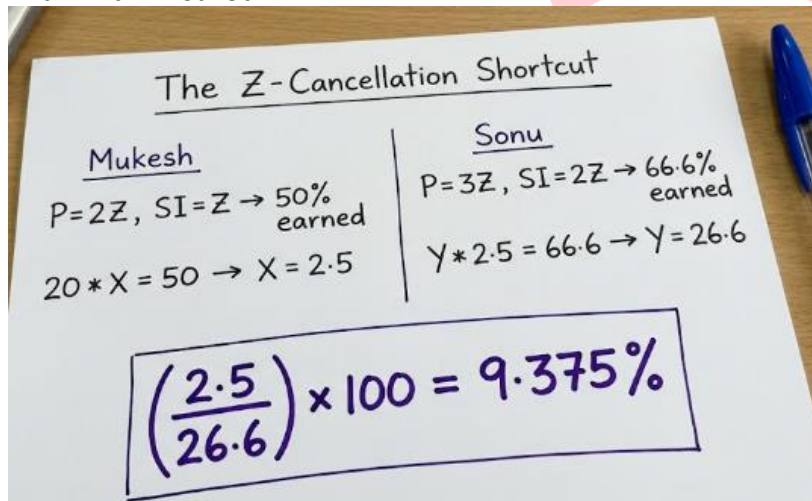 The Z-Cancellation Shortcut
Mukesh
P=2Z, SI=Z → 50%
earned
20 * X = 50 → X = 2.5
Sonu
P=3Z, SI=2Z → 66.6%
earned
Y * 2.5 = 66.6 → Y = 26.6
(2.5/26.6) × 100 = 9.375%